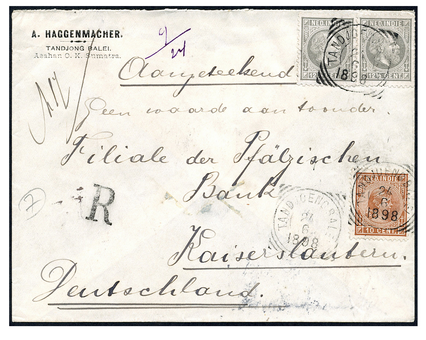 A. HAGGENMACHER.
TANDJONG BALEI.
Asahan O. K. Sumatra.
9/24
Aangeteekend.
Geen waarde aantoonder.
Filiale der Pfälzischen
Bank
R
Kaiserslautern.
Deutschland.
NED. INDIE
12½ CENT
12½ CENT
1898
24
6
1898
10 CENT
24
6
1898